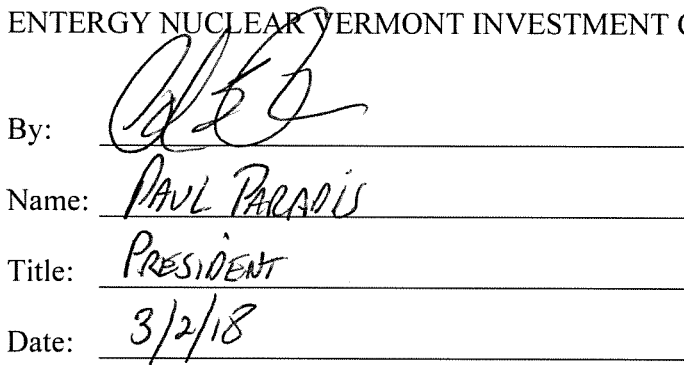 ENTERGY NUCLEAR VERMONT INVESTMENT
By:
Name: PAUL PARADIS
Title: PRESIDENT
Date: 3/2/18